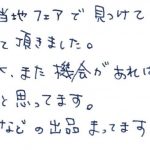 当地フェアで見つけて
て頂きました。
また機会があれば
と思ってます。
などの出品まってます